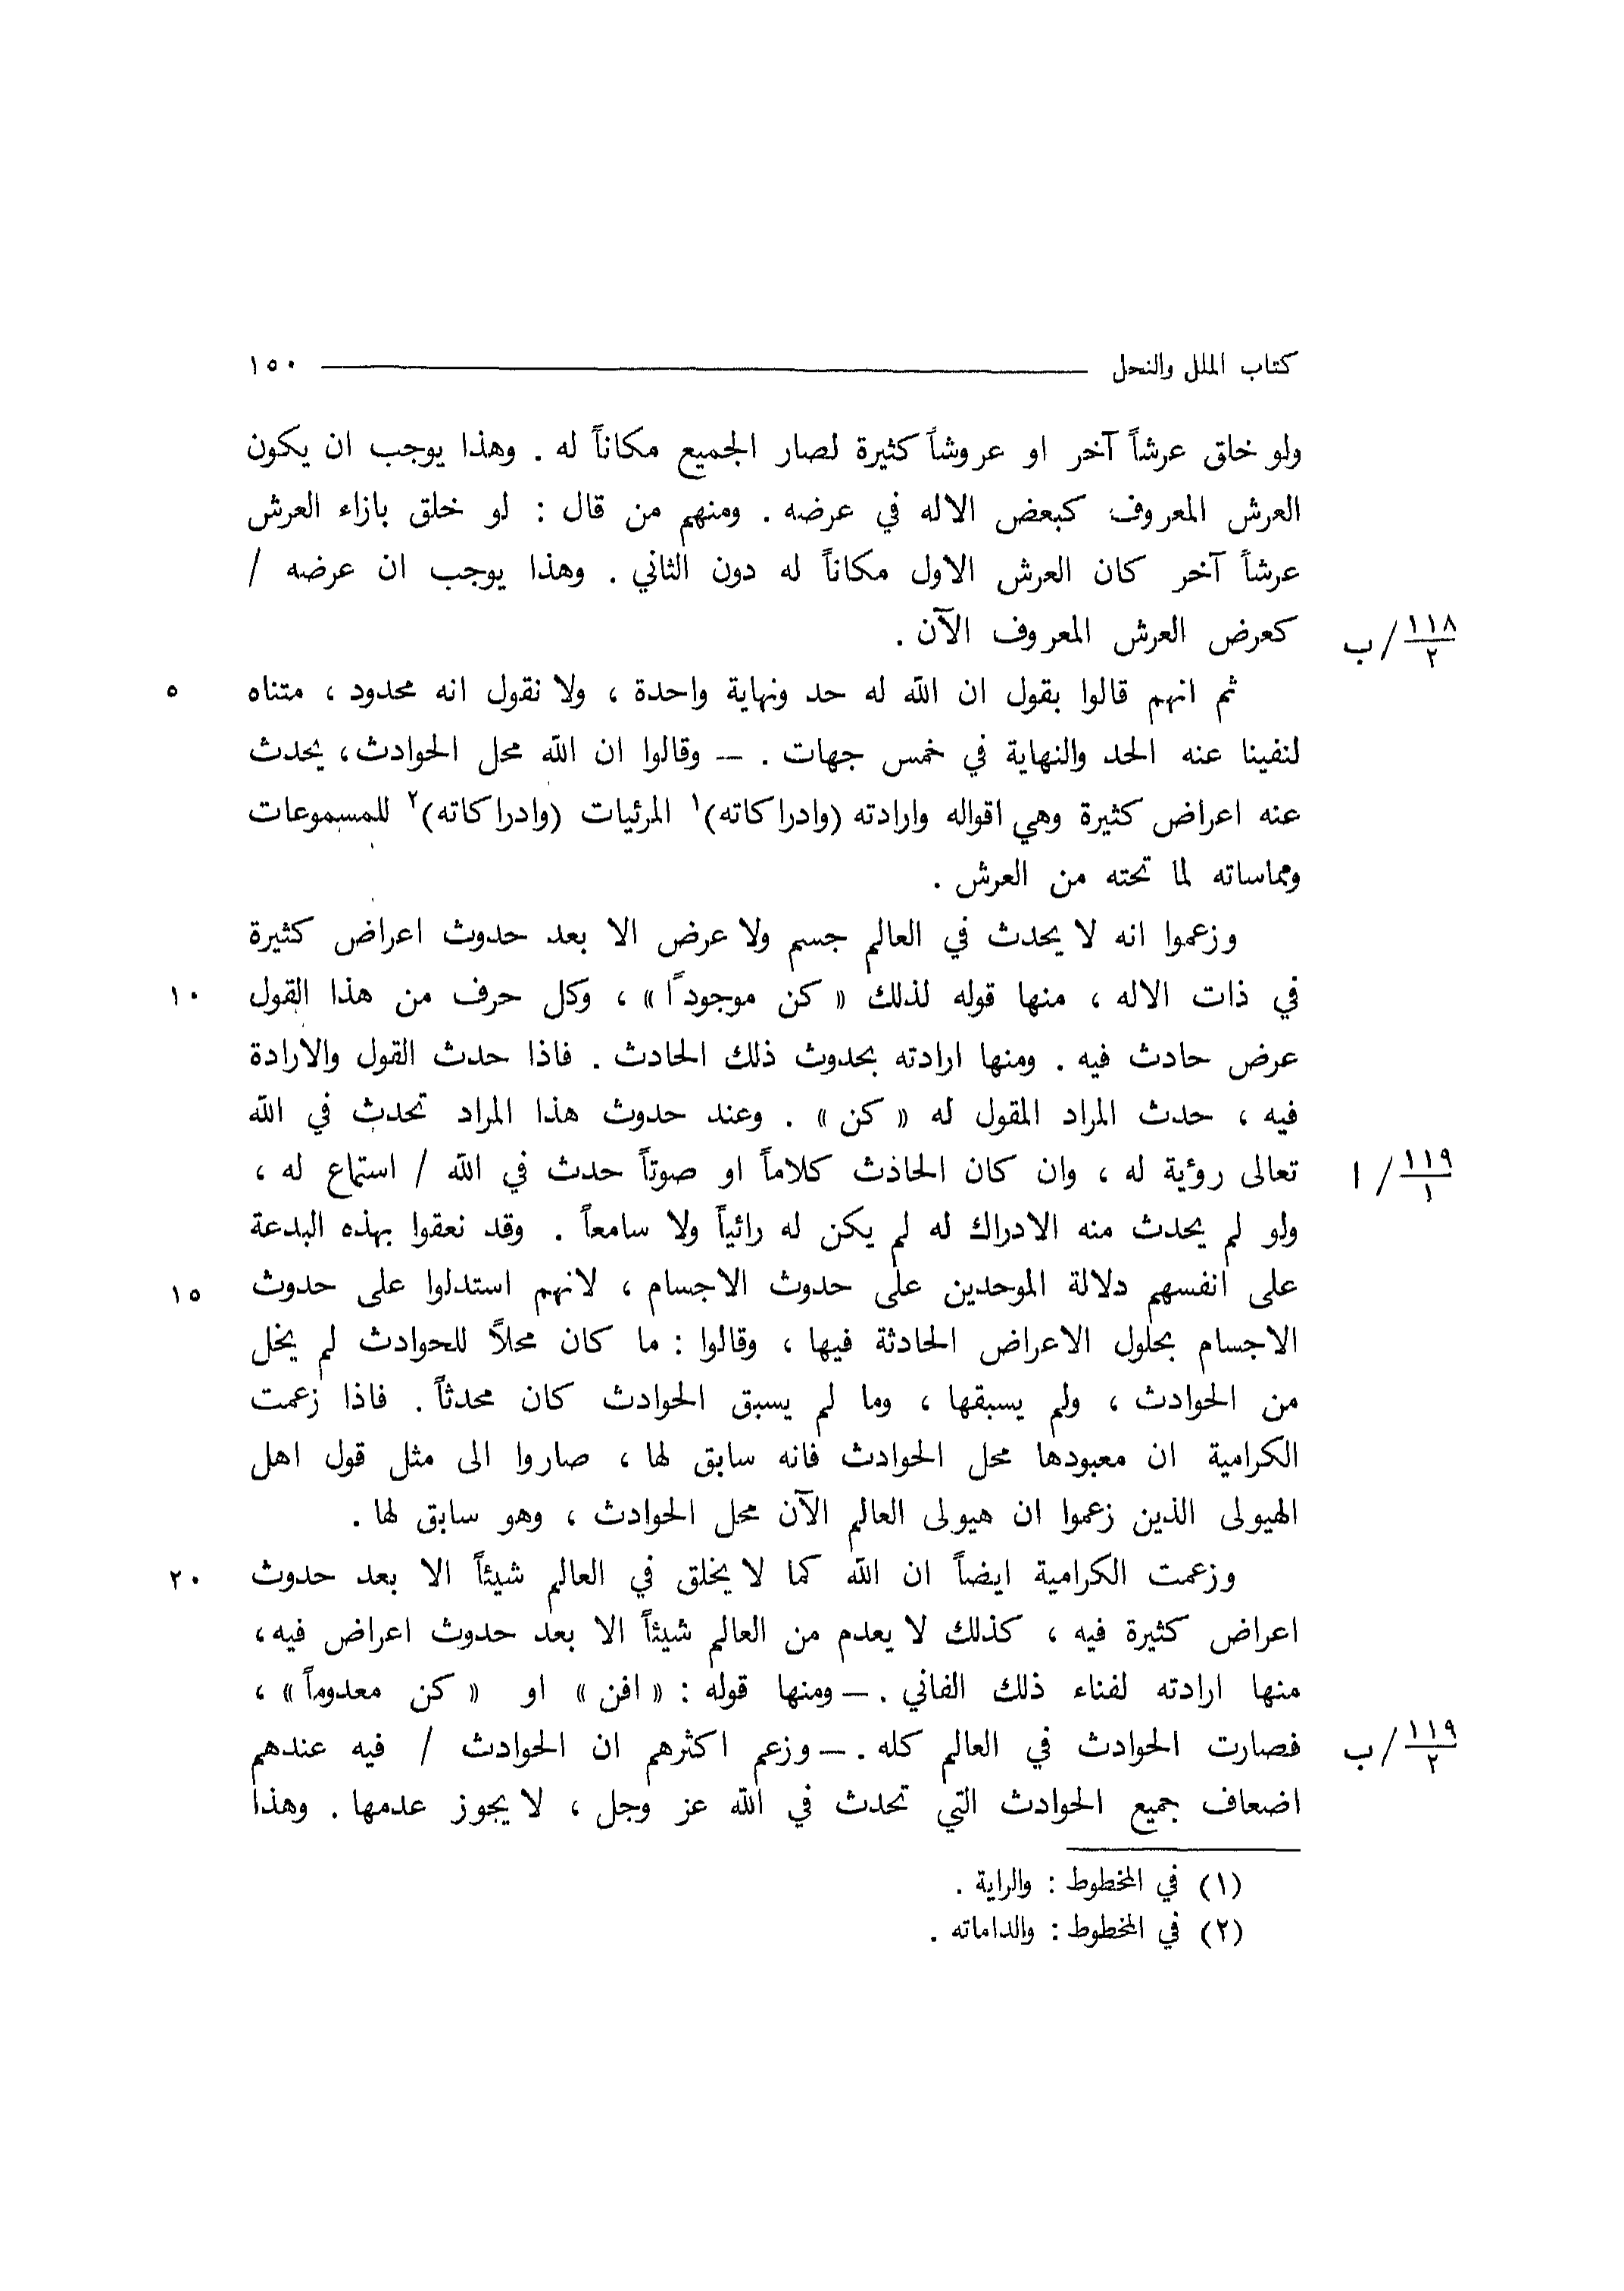 كتاب الملل والنحل ١٥٠
ولو خلق عرشاً آخر او عروشاً كثيرة لصار الجميع مكاناً له . وهذا يوجب ان يكون
العرش المعروف كبعض الاله في عرضه . ومنهم من قال : لو خلق بازاء العرش
عرشاً آخر كان العرش الاول مكاناً له دون الثاني . وهذا يوجب ان عرضه /
كعرض العرش المعروف الآن . ١١٨/٢ / ب
ثم انهم قالوا بقول ان الله له حد ونهاية واحدة ، ولا نقول انه محدود ، متناه ٥
لنفينا عنه الحد والنهاية في خمس جهات . — وقالوا ان الله محل الحوادث ، يحدث
عنه اعراض كثيرة وهي اقواله وارادته (وادراكاته)١ المرئيات (وادراكاته)٢ للمسموعات
ومماساته لما تحته من العرش .
وزعموا انه لا يحدث في العالم جسم ولا عرض الا بعد حدوث اعراض كثيرة
في ذات الاله ، منها قوله لذلك « كن موجوداً » ، وكل حرف من هذا القول ١٠
عرض حادث فيه . ومنها ارادته بحدوث ذلك الحادث . فاذا حدث القول والارادة
فيه ، حدث المراد المقول له « كن » . وعند حدوث هذا المراد تحدث في الله
تعالى رؤية له ، وان كان الحاذث كلاماً او صوتاً حدث في الله / استماع له ، ١١٩/١ / ا
ولو لم يحدث منه الادراك له لم يكن له رائياً ولا سامعاً . وقد نعقوا بهذه البدعة
على انفسهم دلالة الموحدين على حدوث الاجسام ، لانهم استدلوا على حدوث ١٥
الاجسام بحلول الاعراض الحادثة فيها ، وقالوا : ما كان محلاً للحوادث لم يخل
من الحوادث ، ولم يسبقها ، وما لم يسبق الحوادث كان محدثاً . فاذا زعمت
الكرامية ان معبودها محل الحوادث فانه سابق لها ، صاروا الى مثل قول اهل
الهيولى الذين زعموا ان هيولى العالم الآن محل الحوادث ، وهو سابق لها .
وزعمت الكرامية ايضاً ان الله كما لا يخلق في العالم شيئاً الا بعد حدوث ٢٠
اعراض كثيرة فيه ، كذلك لا يعدم من العالم شيئاً الا بعد حدوث اعراض فيه ،
منها ارادته لفناء ذلك الفاني . — ومنها قوله : « افن » او « كن معدوماً » ،
فصارت الحوادث في العالم كله . — وزعم اكثرهم ان الحوادث / فيه عندهم ١١٩/٢ / ب
اضعاف جميع الحوادث التي تحدث في الله عز وجل ، لا يجوز عدمها . وهذا
(١) في المخطوط : والراية .
(٢) في المخطوط : والداماته .